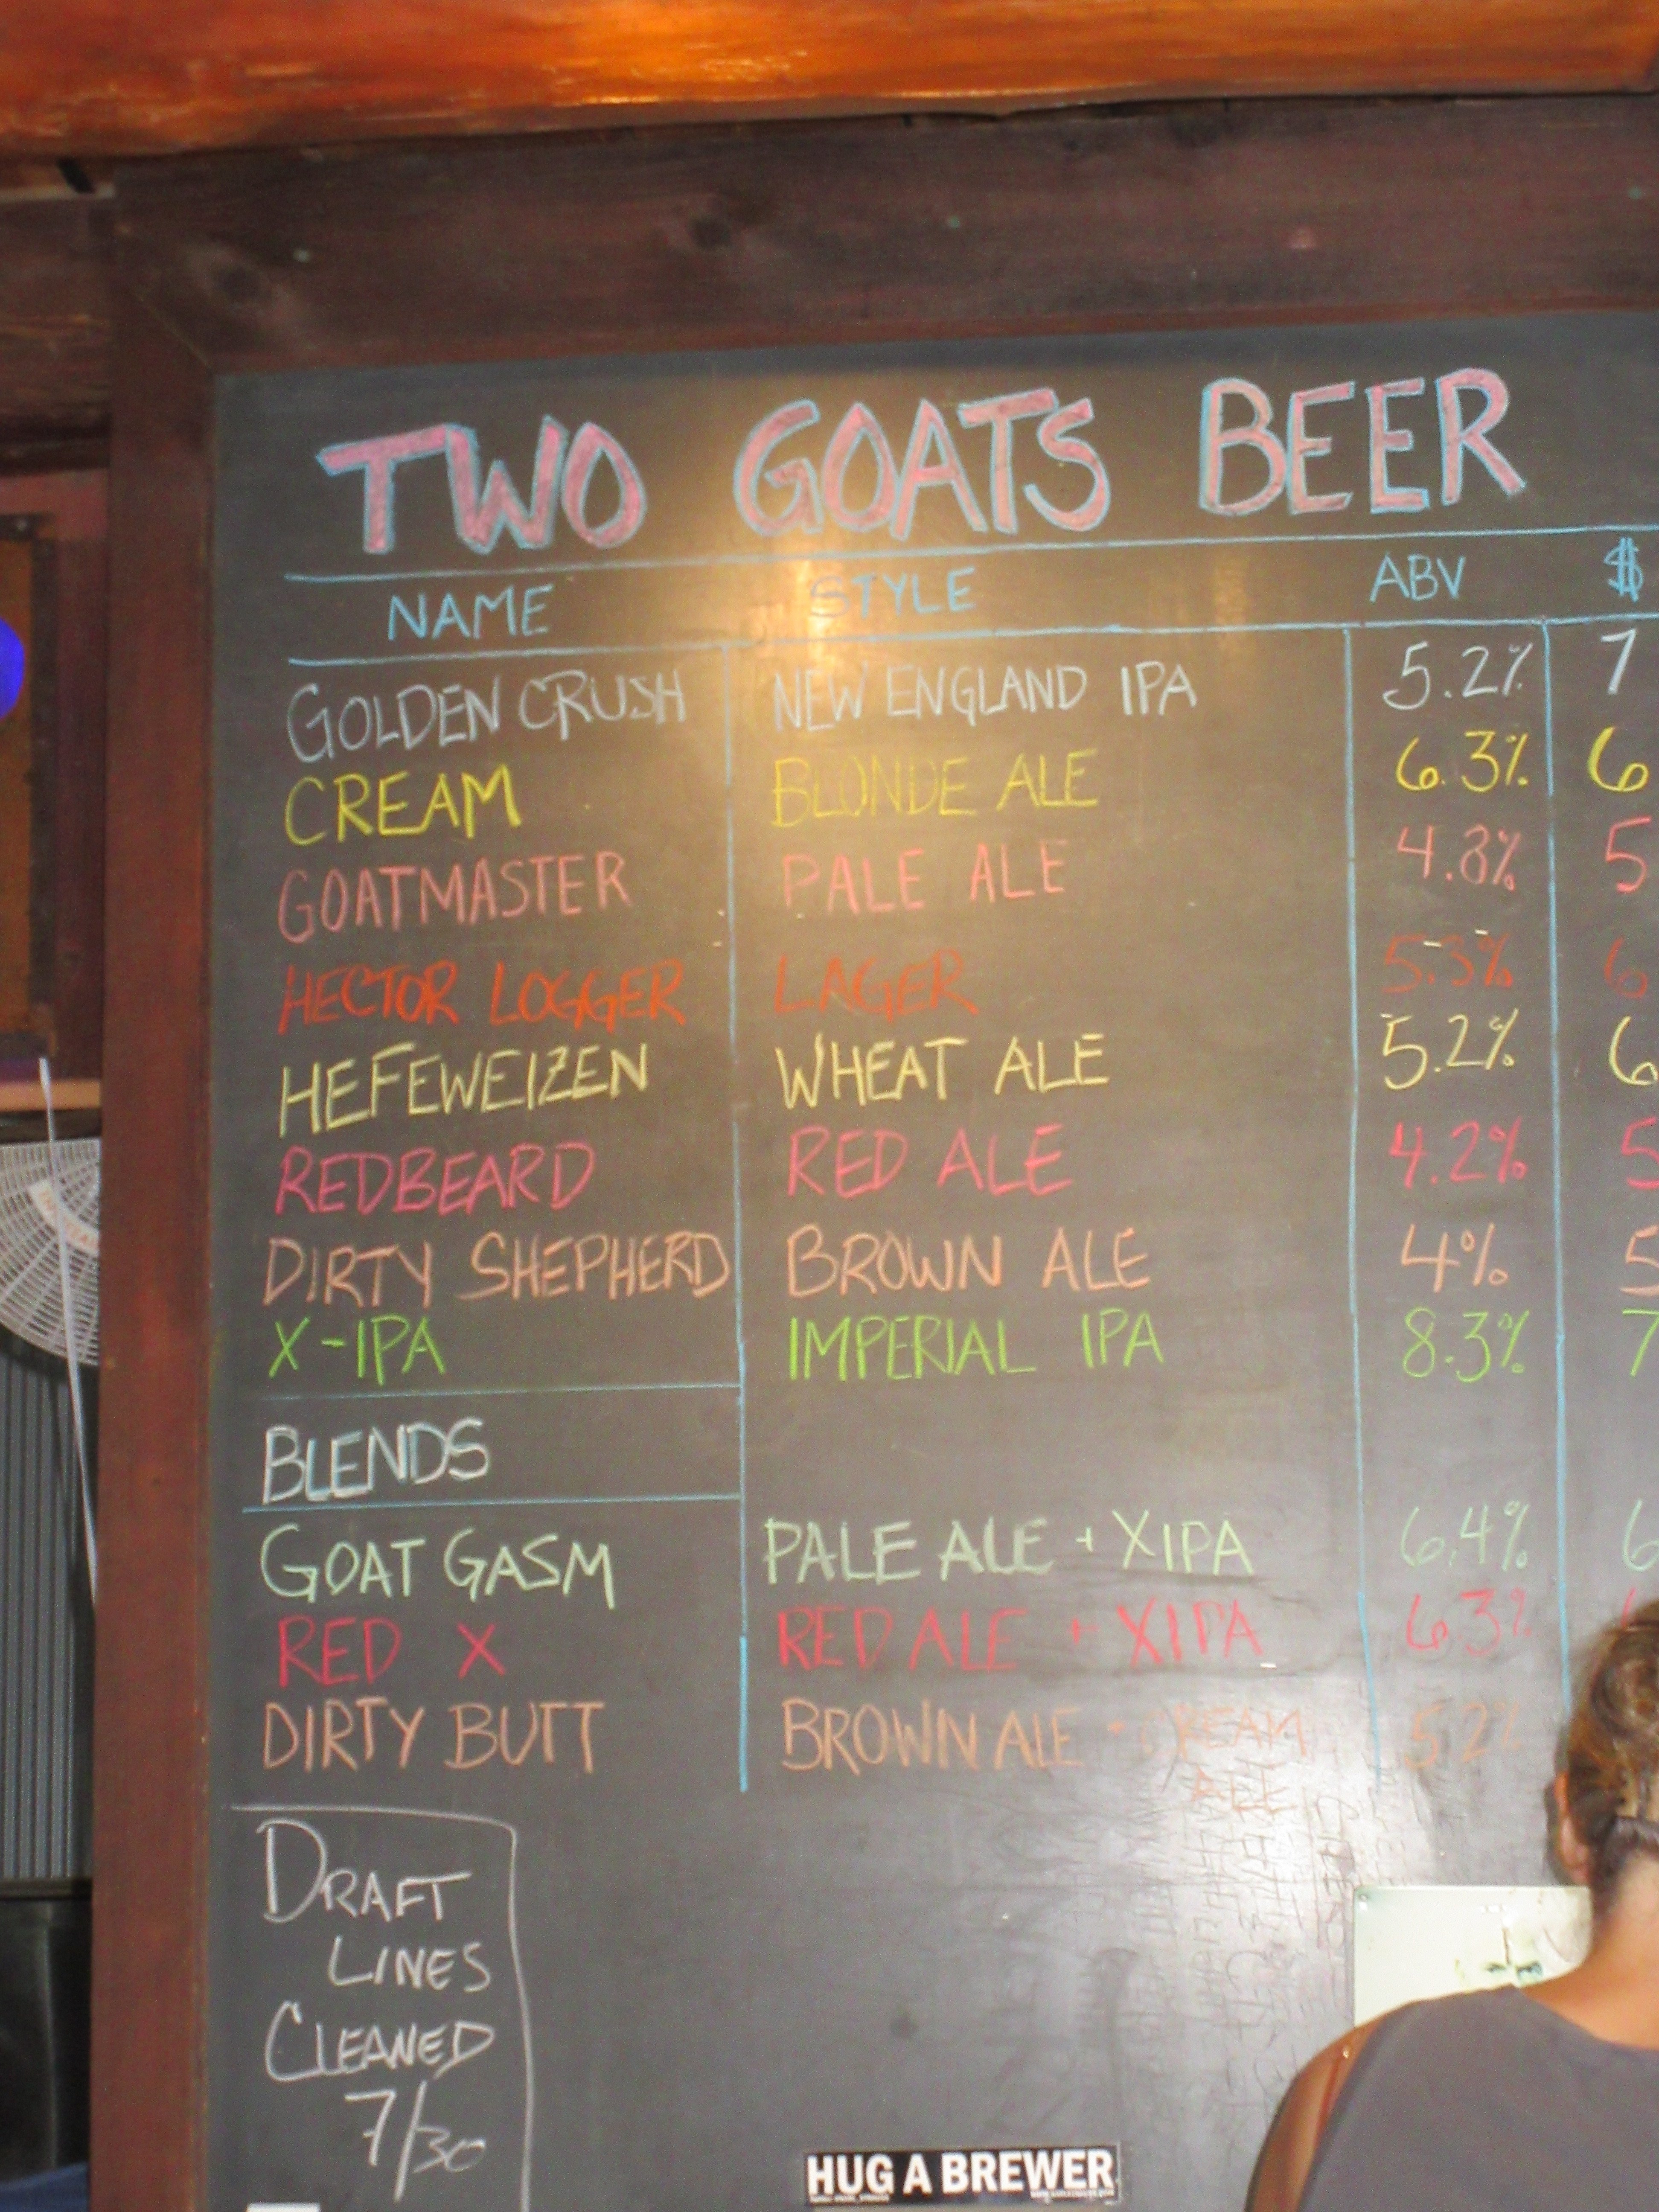 TWO GOATS BEER
NAME STYLE ABV $
GOLDEN CRUSH NEW ENGLAND IPA 5.2% 7
CREAM BLONDE ALE 6.3% 6
GOATMASTER PALE ALE 4.8% 5
HECTOR LOGGER LAGER 5.3% 6
HEFEWEIZEN WHEAT ALE 5.2% 6
REDBEARD RED ALE 4.2% 5
DIRTY SHEPHERD BROWN ALE 4% 5
X-IPA IMPERIAL IPA 8.3% 7
BLENDS
GOAT GASM PALE ALE + XIPA 6.4% 6
RED X RED ALE + XIPA 6.3%
DIRTY BUTT BROWN ALE - CREAM 5.2%
ALE
DRAFT
LINES
CLEANED
7/30
HUG A BREWER